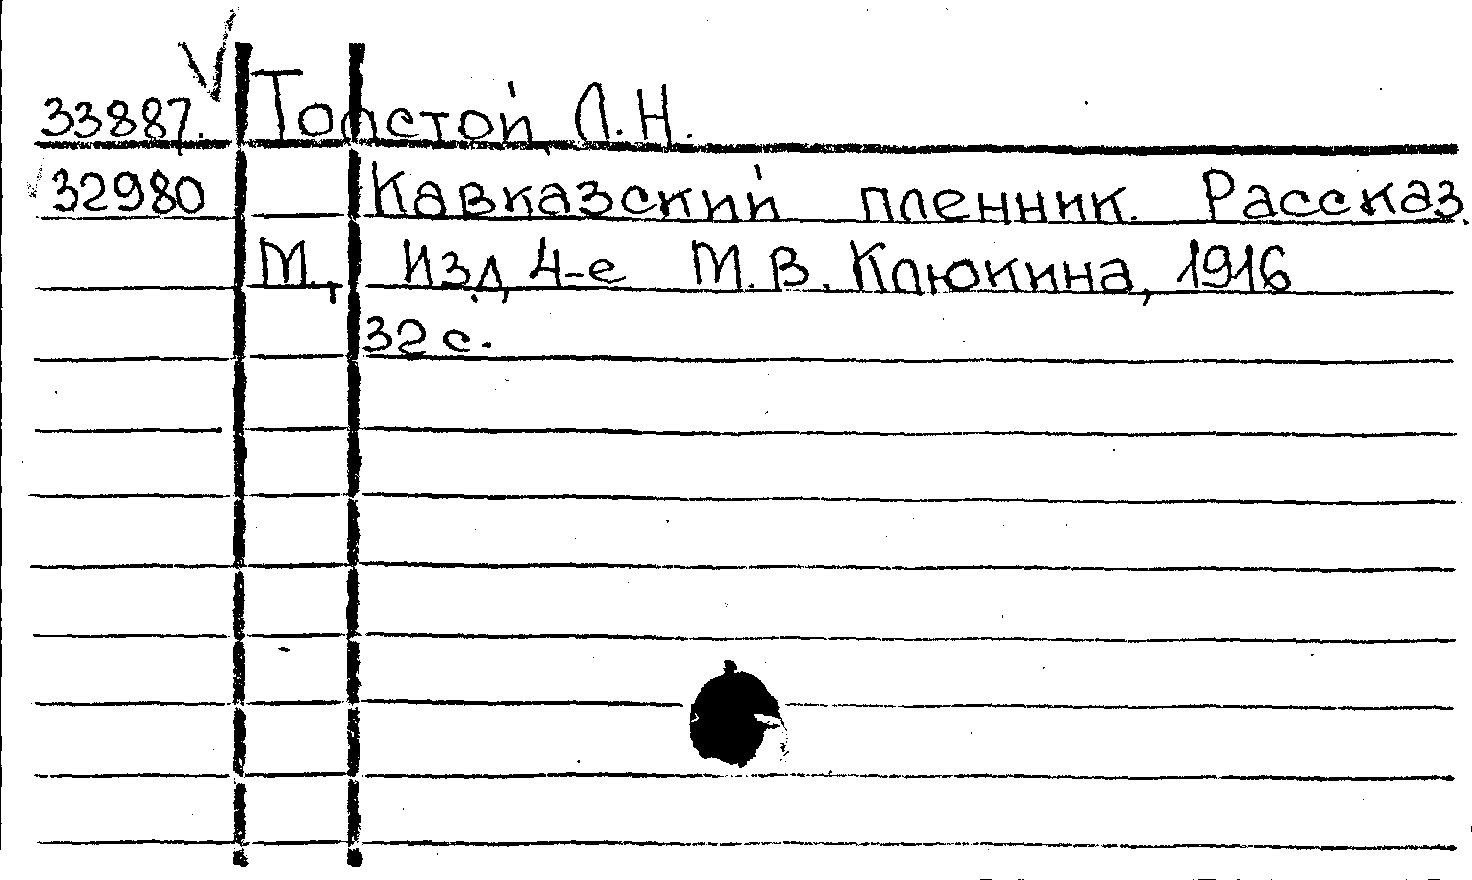 33887. Толстой Л.Н.
32980 Кавказский пленник. Рассказ.
М., Изд. 4-е М.В. Клюкина, 1916
32 с.